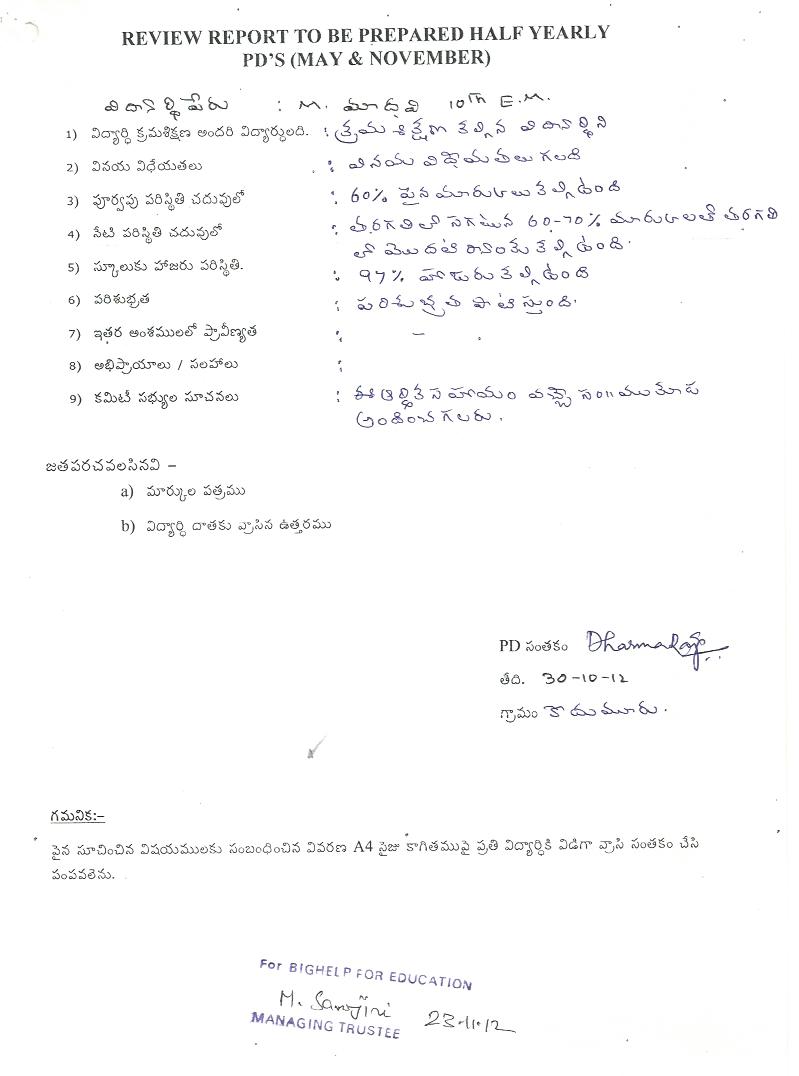 REVIEW REPORT TO BE PREPARED HALF YEARLY
PD'S (MAY & NOVEMBER)
విద్యార్థి పేరు : M. మాధవి 10th E.M.
1) విద్యార్ధి క్రమశిక్షణ అందరి విద్యార్థులది. : క్రమశిక్షణ కల్గిన విద్యార్థిని
2) వినయ విధేయతలు : వినయ విధేయతలు గలది
3) పూర్వపు పరిస్థితి చదువులో : 60% పైన మార్కులు కల్గిఉంది
4) నేటి పరిస్థితి చదువులో : తరగతిలో సగమున 60-70% మార్కులతో తరగతి
లో మొదటి ర్యాంకు కల్గిఉంది.
5) స్కూలుకు హాజరు పరిస్థితి. : 97% హాజరు కల్గిఉంది
6) పరిశుభ్రత : పరిశుభ్రత పాటిస్తుంది.
7) ఇతర అంశములలో ప్రావీణ్యత : - .
8) అభిప్రాయాలు / సలహాలు :
9) కమిటీ సభ్యుల సూచనలు : ఈ ఆర్థిక సహాయం వచ్చే సం॥ము కూడ
అందించగలరు.
జతపరచవలసినవి –
a) మార్కుల పత్రము
b) విద్యార్ధి దాతకు వ్రాసిన ఉత్తరము
PD సంతకం Dharmaraju
తేది. 30-10-12
గ్రామం కొదుమూరు.
గమనిక:–
పైన సూచించిన విషయములకు సంబంధించిన వివరణ A4 సైజు కాగితముపై ప్రతి విద్యార్ధికి విడిగా వ్రాసి సంతకం చేసి
పంపవలెను.
For BIGHELP FOR EDUCATION
M. Sarojini
MANAGING TRUSTEE 23-11-12